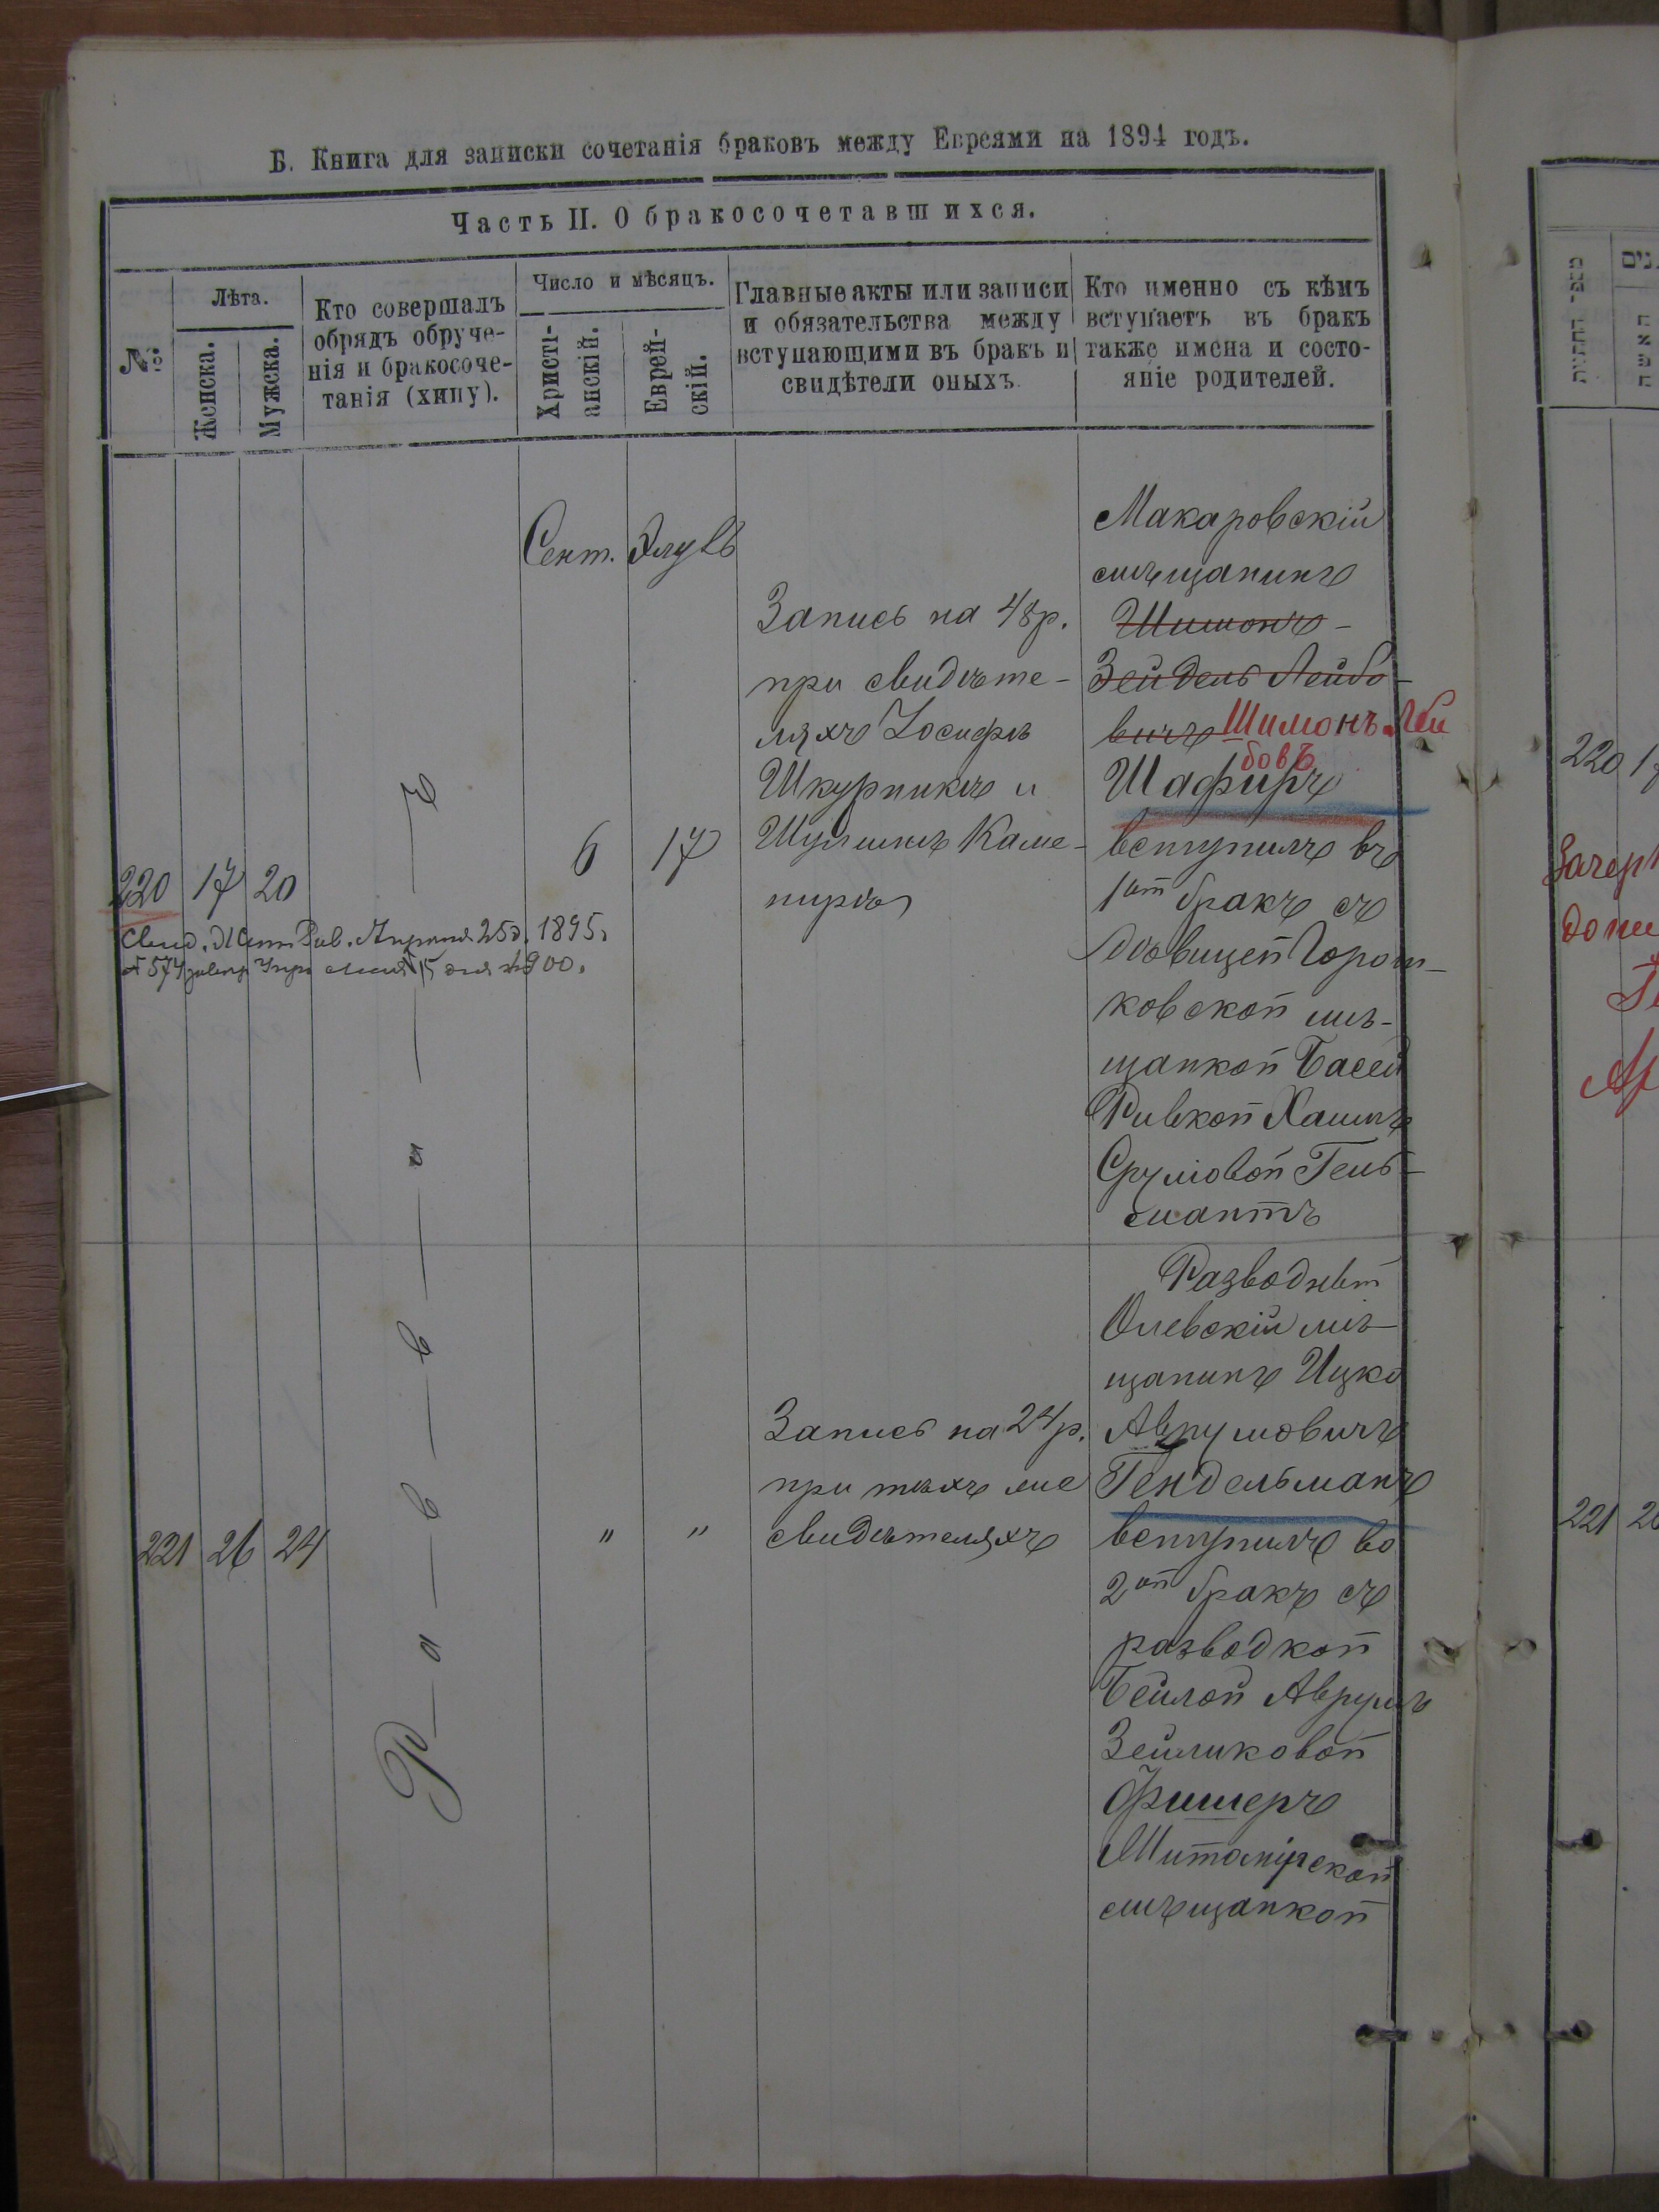 Б. Книга для записки сочетанія браковъ между Евреями на 1894 годъ.
Часть II. О бракосочетавшихся.
№
Лѣта.
Женска.
Мужска.
Кто совершалъ
обрядъ обруче-
нія и бракосоче-
танія (хипу).
Число и мѣсяцъ.
Христі-
анскій.
Еврей-
скій.
Главные акты или записи
и обязательства между
вступающими въ бракъ и
свидѣтели оныхъ.
Кто именно съ кѣмъ
вступаетъ въ бракъ
также имена и состо-
яніе родителей.
Сент.
Элулъ
220
17
20
6
17
Запись на 48 р.
при свидѣте-
ляхъ Іосифъ
Шкурникъ и
Шулимъ Каме-
Макаровскій
мѣщанинъ
Шимонъ-
Зейдель Лейбо-
вичъ Шимонъ Лей
бовъ
Шафиръ
вступилъ въ
1ый бракъ съ
дѣвицей Горош-
ковской мѣ-
щанкой Басей
Ривкой Хаимъ
Срулiовой Гель-
мантъ
25 д. 1895
№ 574
900.
Раввинъ
221
26
24
"
"
Запись на 24 р.
при тѣхъ же
свидѣтеляхъ
Разводный
Олевскій мѣ-
щанинъ Ицко
Аврумовичъ
Гендельманъ
вступилъ во
2ой бракъ съ
разводкой
Бейлой Аврумъ
Зейликовой
Фишеръ
Житомірской
мѣщанкой
220
221